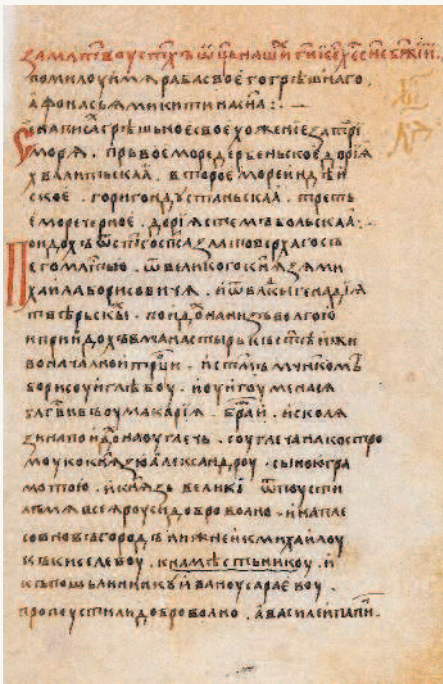 За млт҃воу ст҃хъ ѿц҃ь нашиⷯ гс҃и іс҃е хс҃е сн҃е бж҃ій.
помилоуй мя раба своего грѣшнаго.
афонасья микитина сн҃а :—
Се написаⷯ грѣшьное свое хоженіе за три
моря . прьвое море дербеньское дорія
хвалитьскаа . второе море индѣи
ское . горигондустаньскаа . треть
е море черное . дорія стемъбольскаа :
Поидохъ ѿ ст҃го сп҃са златоверхаго съ
его млт҃ью . ѿ великого кн҃ѕя ми
хаила борисовичя . и ѿ влⷣкы генадія
твѣрьскыⷯ . поидоⷯ на низъ волгою
и приидохъ в манастырь къ ст҃ѣи жи
воначалнои трⷪци . и ст҃мъ мчн҃комъ
борисоу и глѣбоу . и оу игоумена ся
блг҃вивъ оу макарія . браⷮи . и с коля
зина поидоⷯ на оуглечь . с оуглеча на костро
моу ко кн҃ѕю александроу . с ыною гра
мотою . и кн҃ѕь великі ѿпоусти
лъ мя всея роуси доброволно . и на пле
со в новъгородъ в нижнеи к михаилоу
къ киселевоу . к намѣстьникоу . и
къ пошьлиникоу иваноу сараевоу .
пропоустили доброволно . а василеи папиⷩ